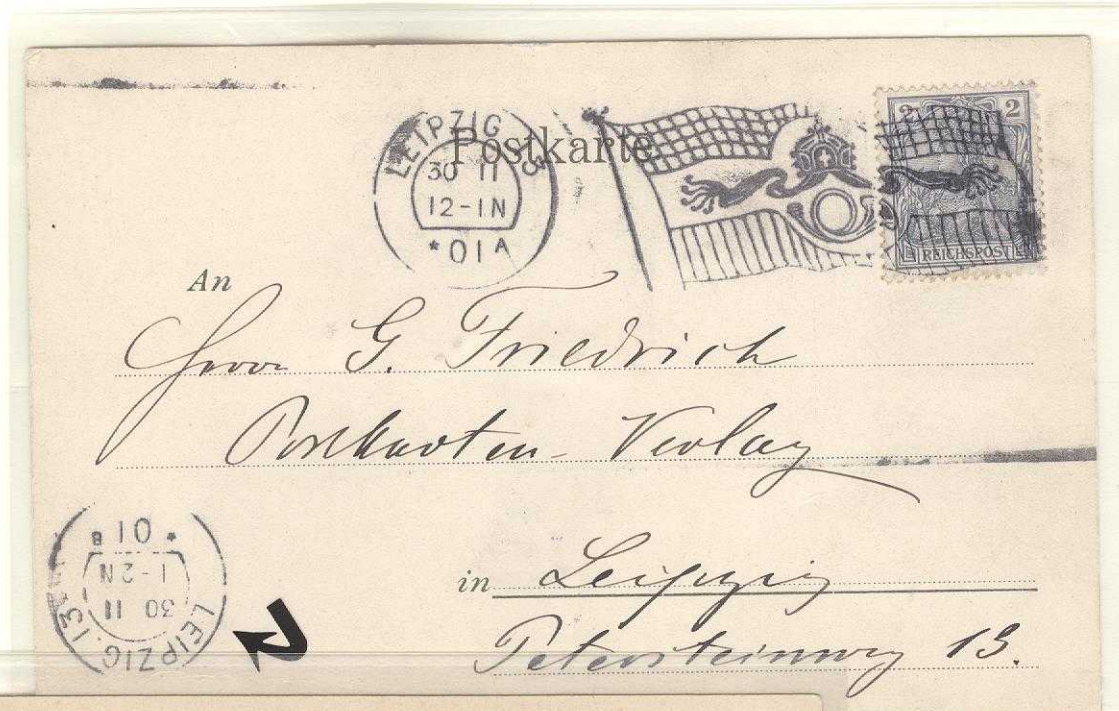 Postkarte
LEIPZIG 13
30 11
12-1N
* 01 A
2 2
REICHSPOST
An
Herrn G. Friedrich
Postkarten-Verlag
in Leipzig
Petersteinweg 13.
LEIPZIG. 13
30 11
1-2N
* 01 B